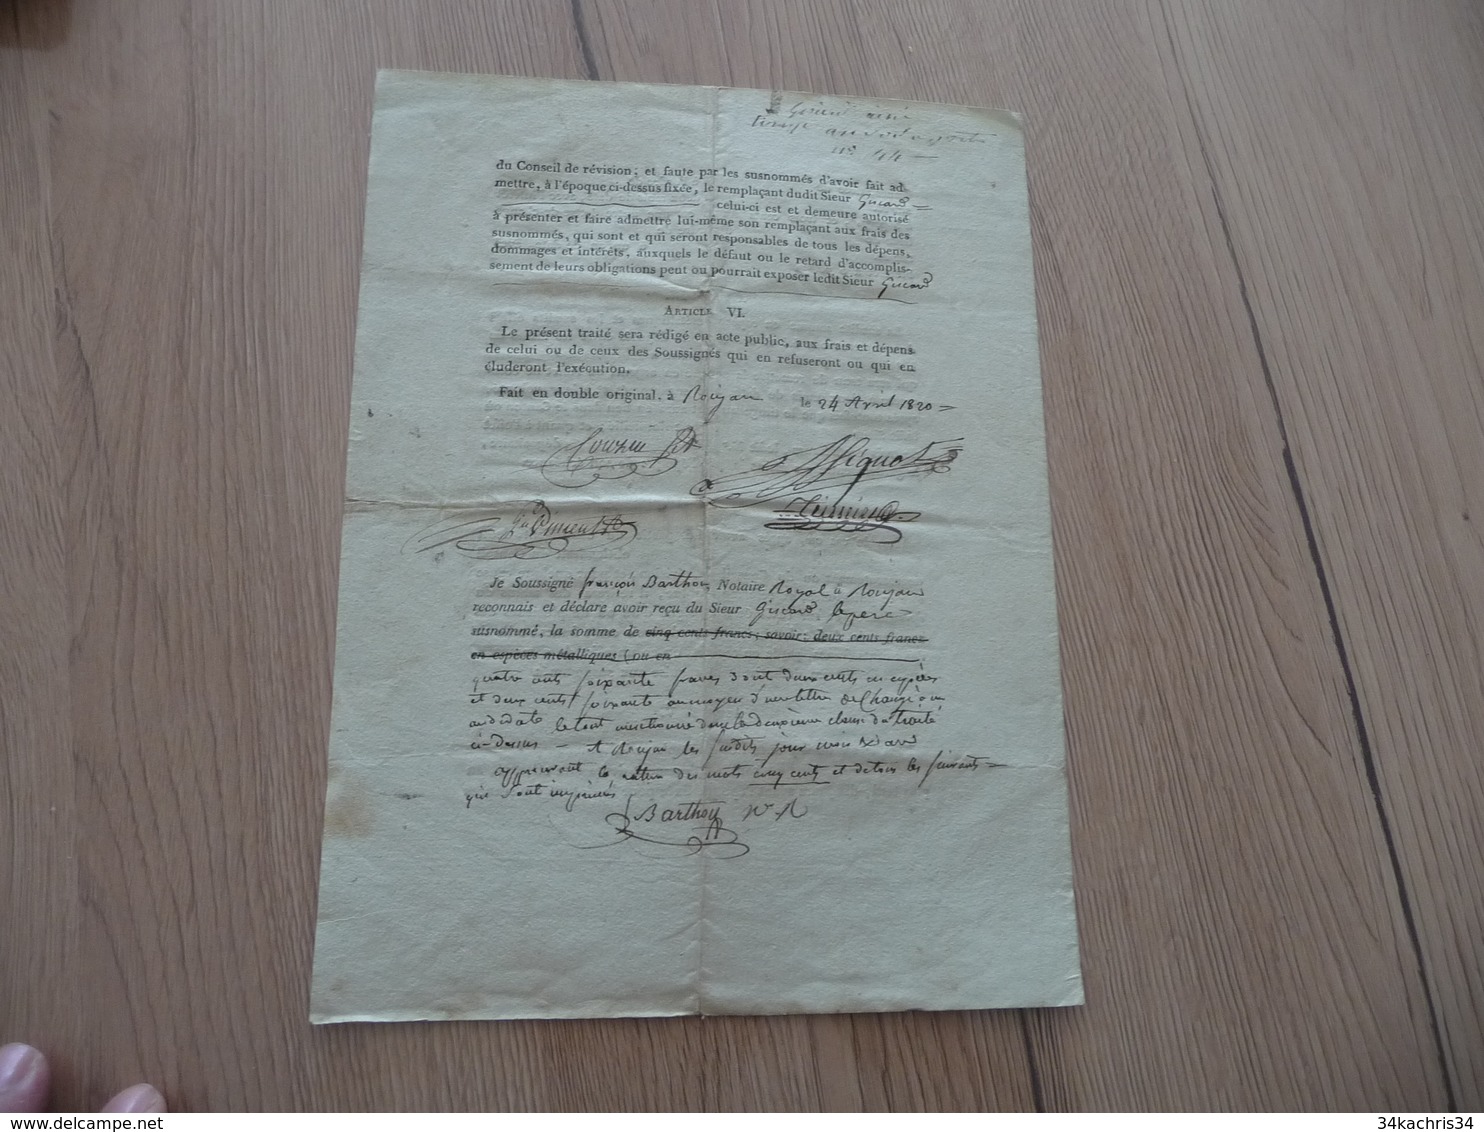 nº 44 —
du Conseil de révision; et faute par les susnommés d'avoir fait ad-
mettre, à l'époque ci-dessus fixée, le remplaçant dudit Sieur Giscard =
celui-ci est et demeure autorisé
à présenter et faire admettre lui-même son remplaçant aux frais des
susnommés, qui sont et qui seront responsables de tous les dépens,
dommages et intérêts, auxquels le défaut ou le retard d'accomplis-
sement de leurs obligations peut ou pourrait exposer ledit Sieur Giscard
ARTICLE VI.
Le présent traité sera rédigé en acte public, aux frais et dépens
de celui ou de ceux des Soussignés qui en refuseront ou qui en
éluderont l'exécution.
Fait en double original, à Roujan le 24 Avril 1820 =
Je Soussigné françois Barthez Notaire Royal à Roujan
reconnais et déclare avoir reçu du Sieur Giscard le père =
susnommé, la somme de cinq cents francs; savoir: deux cents francs
en espèces métalliques (ou en
quatre cents soixante francs dont deux cents en espèces
et deux cents soixante au moyen d'une lettre de Change a
le tout mentionné dans la deuxieme clause du traité
ci-dessus — A Roujan les susdits jour mois et an
approuvant la rature des mots cinq cents et de tous les suivants =
qui sont imprimés
Barthez Nre R
34kachris34